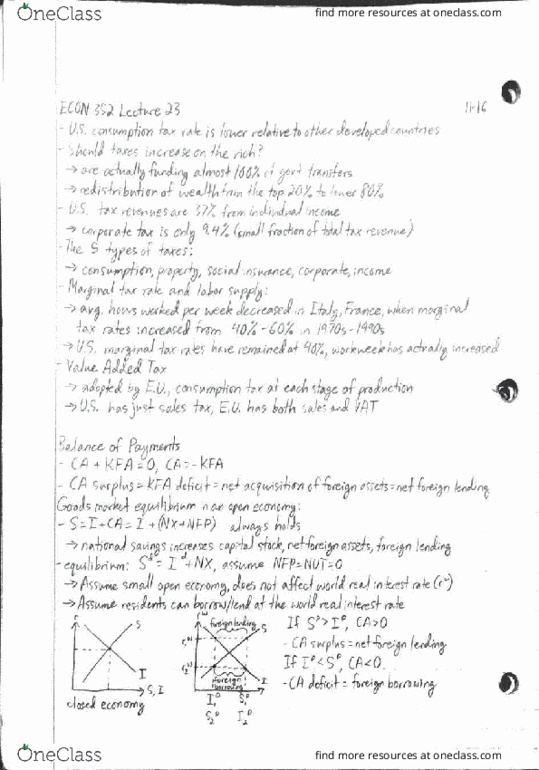 OneClass
find more resources at oneclass.com
ECON 352 Lecture 23 11-16
- U.S. consumption tax rate is lower relative to other developed countries
- Should taxes increase on the rich?
→ are actually funding almost 100% of govt transfers
→ redistribution of wealth from the top 20% to lower 80%
- U.S. tax revenues are 37% from individual income
→ corporate tax is only 9.4% (small fraction of total tax revenue)
- The 5 types of taxes:
→ consumption, property, social insurance, corporate, income
- Marginal tax rate and labor supply:
→ avg. hours worked per week decreased in Italy, France, when marginal
tax rates increased from 40%-60% in 1970s-1990s
→ U.S. marginal tax rates have remained at 40%, workweek has actually increased
- Value Added Tax
→ adopted by E.U., consumption tax at each stage of production
→ U.S. has just sales tax, E.U. has both sales and VAT
Balance of Payments
- CA + KFA = 0, CA = -KFA
- CA surplus = KFA deficit = net acquisition of foreign assets = net foreign lending
Goods market equilibrium in an open economy:
- S = I + CA = I + (NX + NFP) always holds
→ national savings increases capital stock, net foreign assets, foreign lending
- equilibrium: Sᵈ = Iᵈ + NX, assume NFP = NUT = 0
→ Assume small open economy, does not affect world real interest rate (rʷ)
→ Assume residents can borrow/lend at the world real interest rate
r
S
I
S, I
closed economy
rʷ
foreign lending
S
foreign borrowing
I
If Sᴰ > Iᴰ, CA > 0
- CA surplus = net foreign lending
If Iᴰ < Sᴰ, CA < 0
- CA deficit = foreign borrowing
OneClass
find more resources at oneclass.com